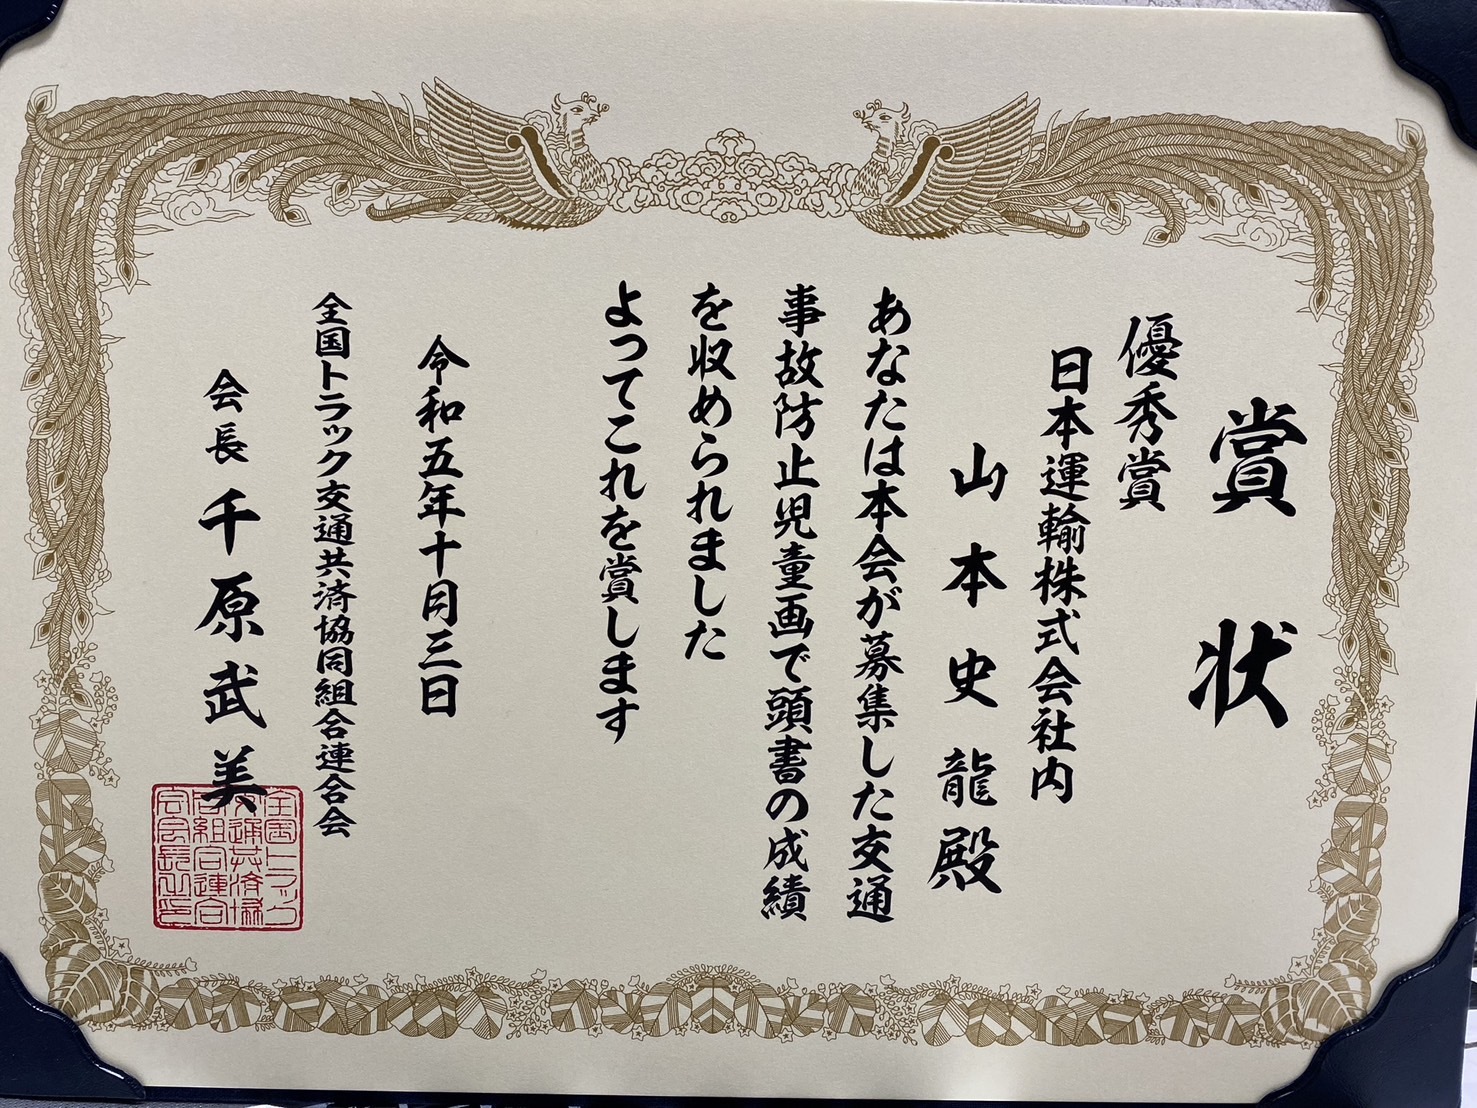 賞状
優秀賞
日本運輸株式会社内
山本史龍殿
あなたは本会が募集した交通
事故防止児童画で頭書の成績
を収められました
よってこれを賞します
令和五年十月三日
全国トラック交通共済協同組合連合会
会長 千原武美
全国トラック
交通共済協
同組合連合
会会長之印